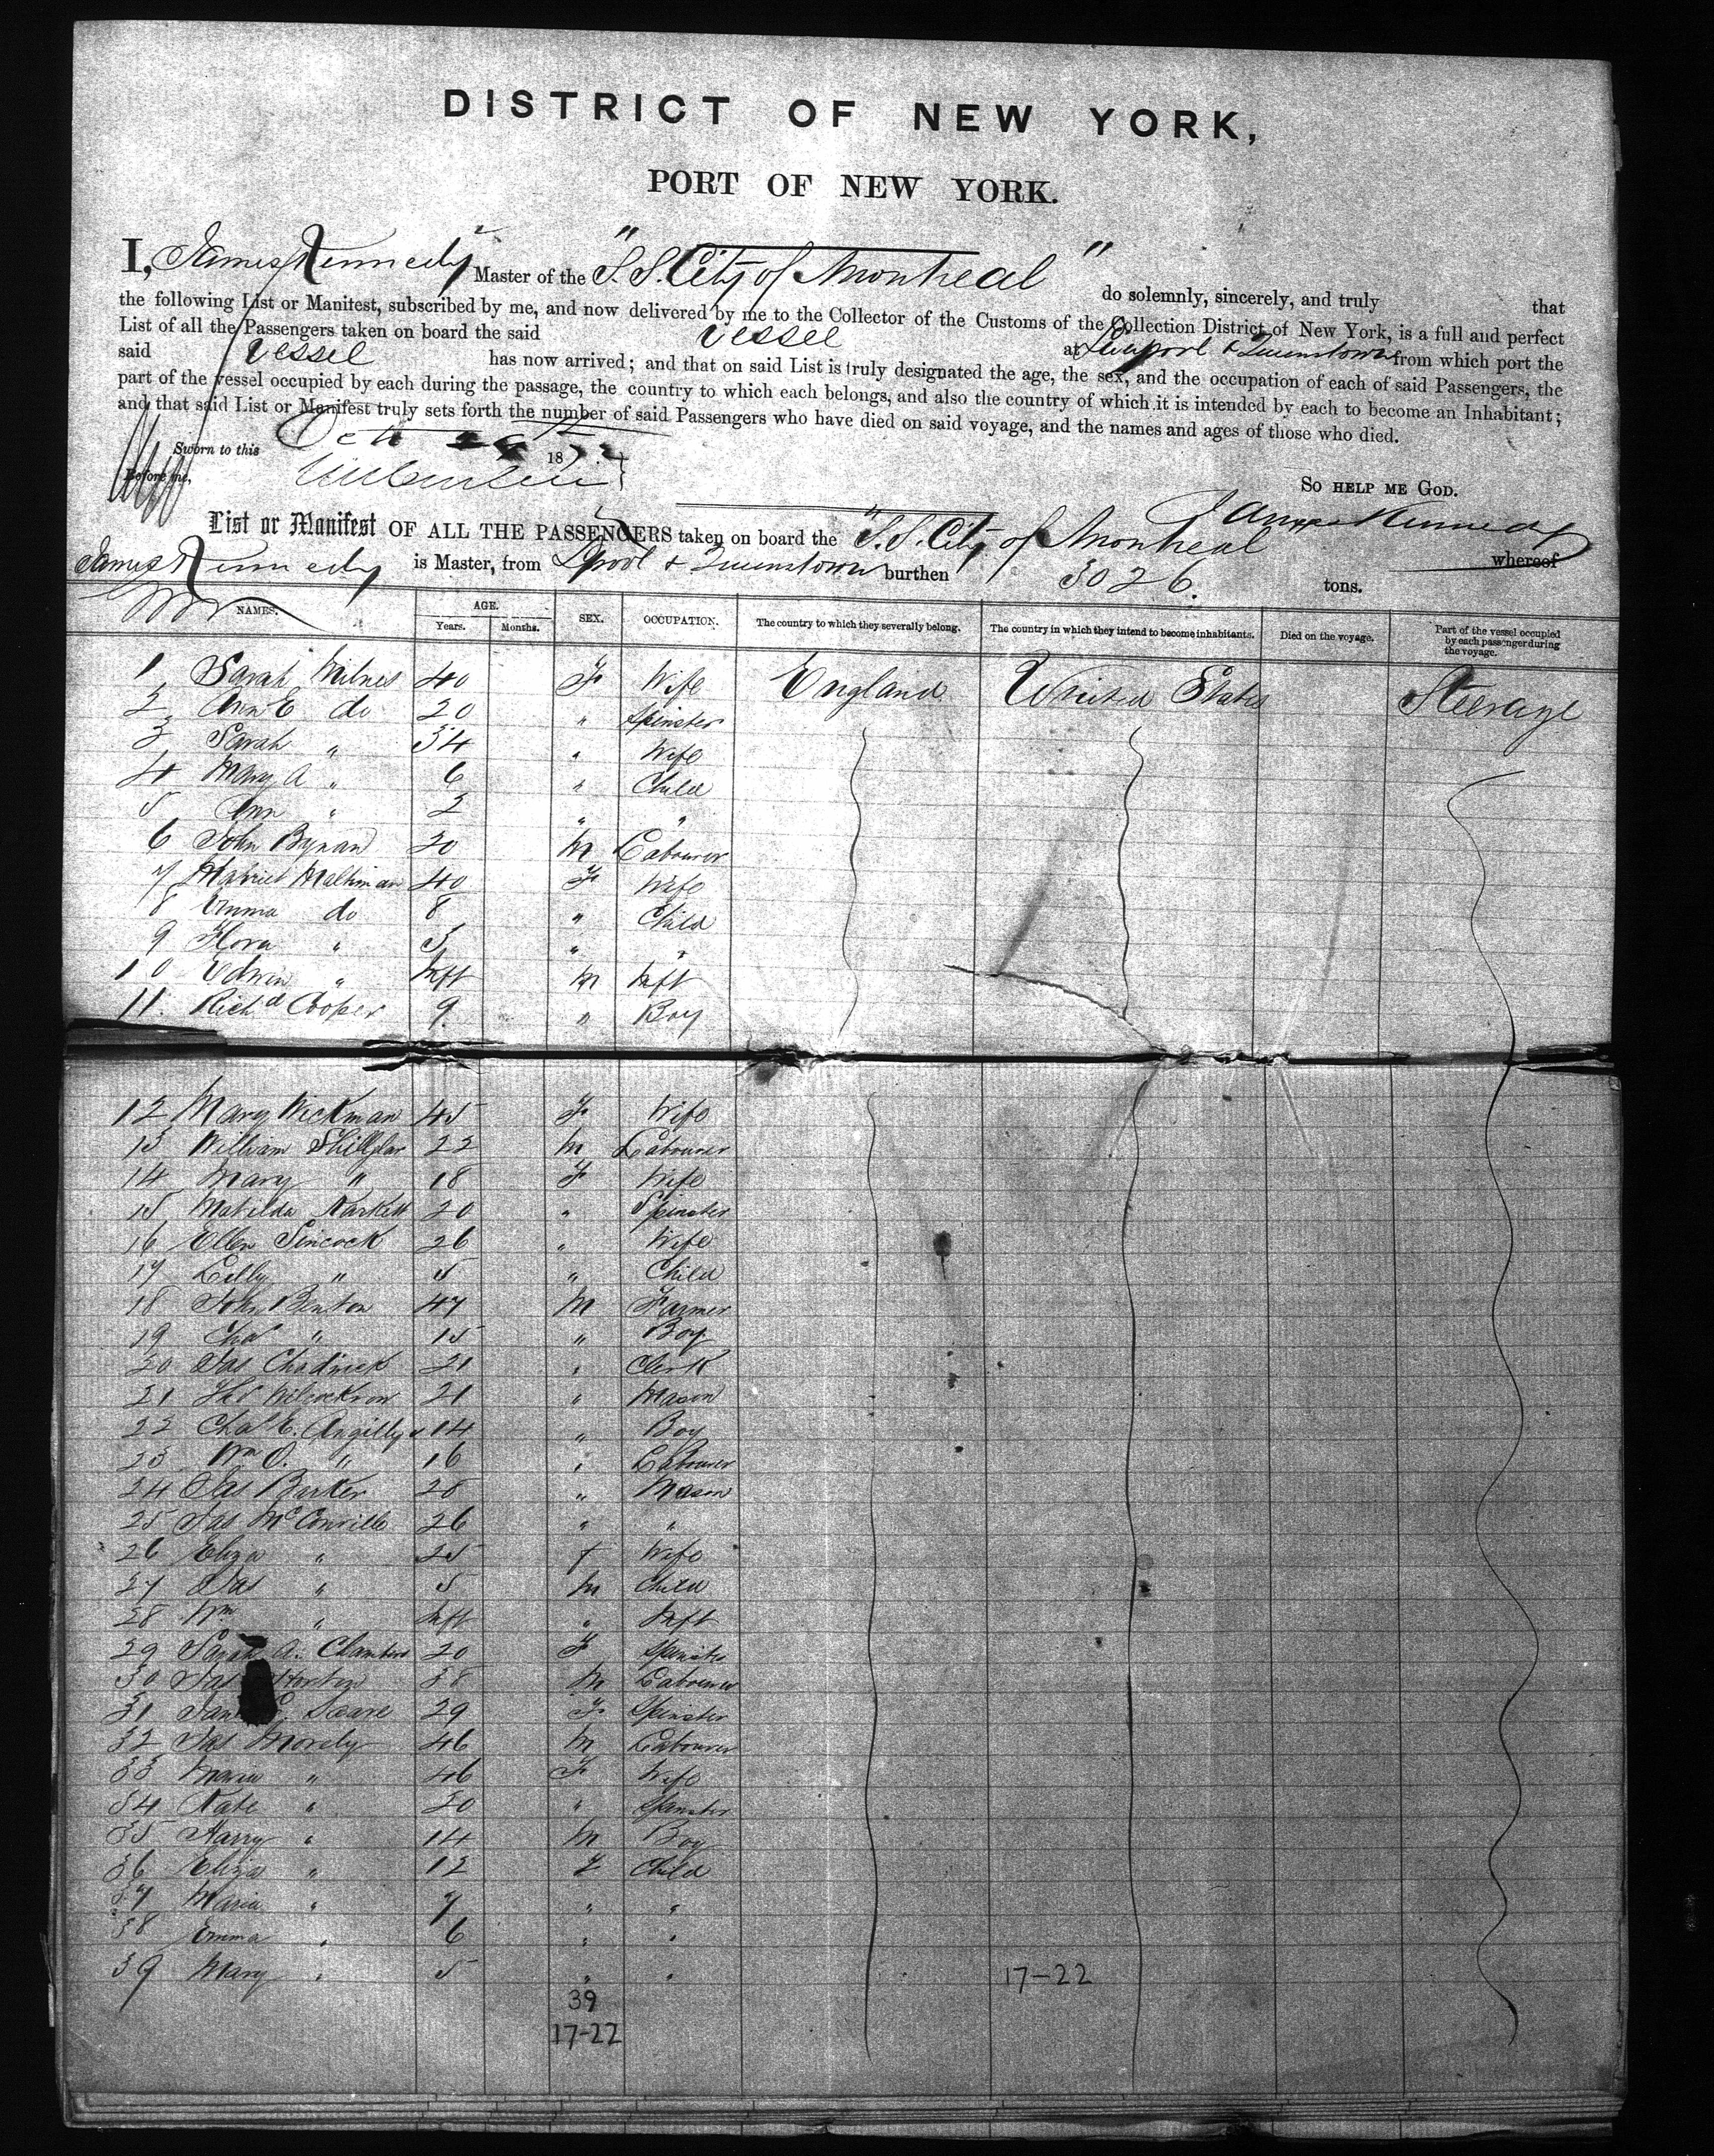 DISTRICT OF NEW YORK,
PORT OF NEW YORK.
I, James Kennedy Master of the "S.S. City of Montreal" do solemnly, sincerely, and truly that
the following List or Manifest, subscribed by me, and now delivered by me to the Collector of the Customs of the Collection District of New York, is a full and perfect
List of all the Passengers taken on board the said vessel at Liverpool & Queenstown from which port the
said vessel has now arrived; and that on said List is truly designated the age, the sex, and the occupation of each of said Passengers, the
part of the vessel occupied by each during the passage, the country to which each belongs, and also the country of which it is intended by each to become an Inhabitant;
and that said List or Manifest truly sets forth the number of said Passengers who have died on said voyage, and the names and ages of those who died.
Sworn to this Oct 1872
Before me,
So HELP ME GOD.
James Kennedy
List or Manifest OF ALL THE PASSENGERS taken on board the "S.S. City of Montreal" whereof
James Kennedy is Master, from Lpool & Queenstown burthen 3026. tons.
NAMES. AGE. Years. Months. SEX. OCCUPATION. The country to which they severally belong. The country in which they intend to become inhabitants. Died on the voyage. Part of the vessel occupied by each passenger during the voyage.
1 Sarah Milnes 40 F Wife England United States Steerage
2 Ann E do 20 " Spinster
3 Sarah " 34 " Wife
4 Mary A " 6 " Child
5 Ann " 2 " "
6 John Bynan 20 M Labourer
7 Harriet Maltman 40 F Wife
8 Emma do 8 " Child
9 Flora " 5 " "
10 Edwin " Inft M Inft
11 Richd Cooper 9 " Boy
12 Mary Wickman 45 F Wife
13 William 22 M Labourer
14 Mary " 18 F Wife
15 Matilda 20 " Spinster
16 Ellen Sincock 26 " Wife
17 Lilly " 5 " Child
18 John Benton 47 M Farmer
19 Chas " 15 " Boy
20 Jas Chadwick 21 " Clerk
21 Thos Wilcockson 21 " Mason
22 Chas E. 14 " Boy
23 Wm O. " 16 " Labourer
24 Jas Barker 28 " Mason
25 Jas McConville 26 " "
26 Eliza " 25 f Wife
27 Jas " 5 M Child
28 Wm " Inft " Inft
29 Sarah A. Chambers 20 F Spinster
30 Jas Horton 38 M Labourer
31 29 F Spinster
32 Jas Morely 46 M Labourer
33 Maria " 46 F Wife
34 Kate " 20 " Spinster
35 Harry " 14 M Boy
36 Eliza " 12 F Child
37 Maria " 7 " "
38 Emma " 6 " "
39 Mary " 5 " " 17-22
39
17-22